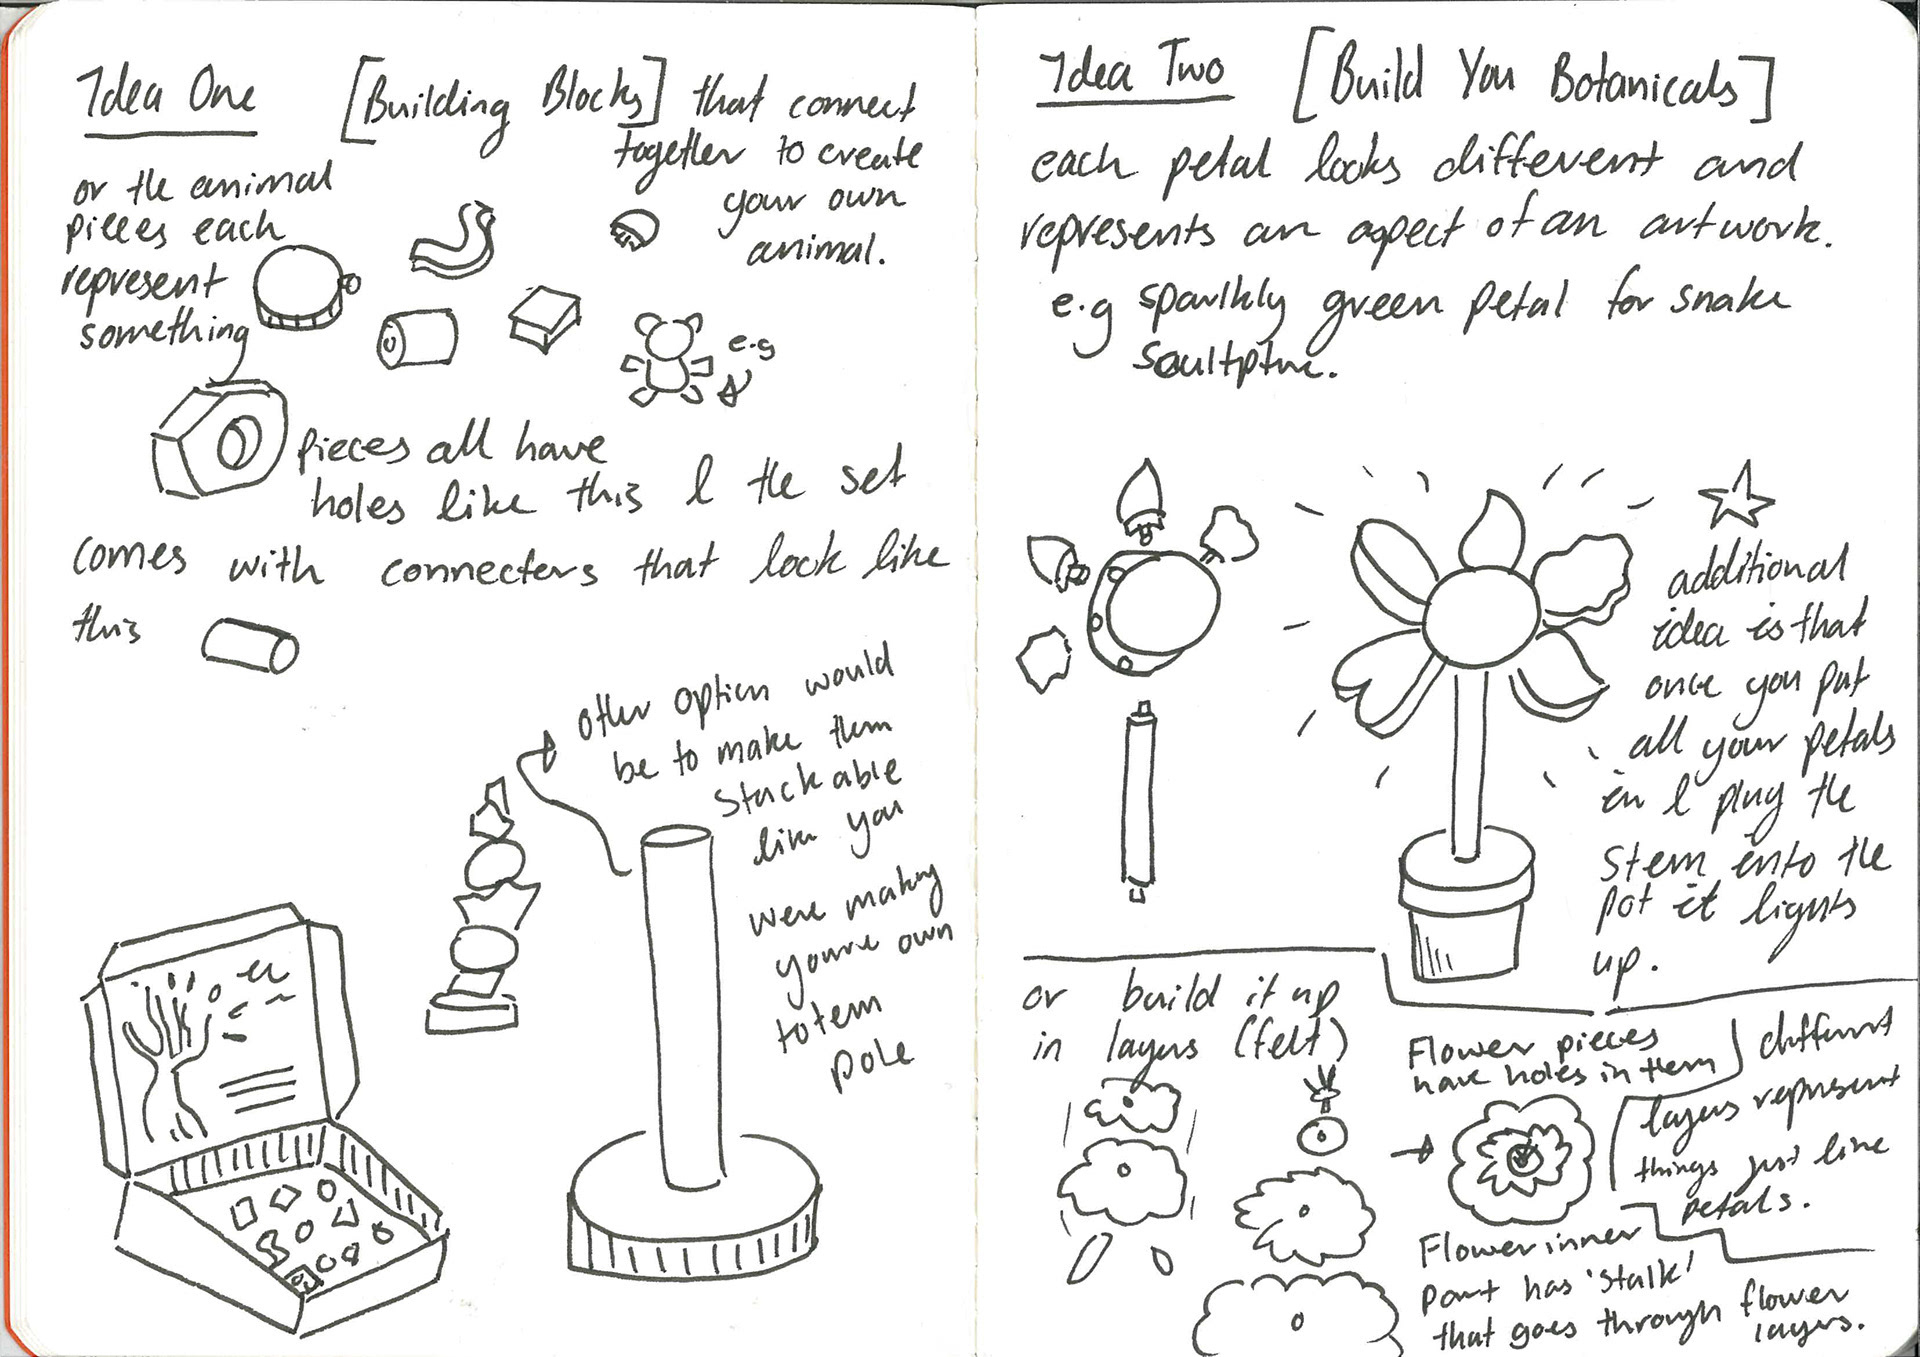 Idea One
[Building Blocks] that connect
together to create
your own
animal.
or the animal
pieces each
represent
something
e.g
pieces all have
holes like this & the set
comes with connecters that look like
this
other option would
be to make them
stackable
like you
were making
youre own
totem
pole
Idea Two
[Build You Botanicals]
each petal looks different and
represents an aspect of an artwork.
e.g sparlkly green petal for snake
sculptpture.
additional
idea is that
once you put
all your petals
in & plug the
stem into the
pot it lights
up.
or build it up
in layers (felt)
Flower pieces
have holes in them
different
layers represent
things just like
petals.
Flower inner
part has 'stalk'
that goes through flower
layers.